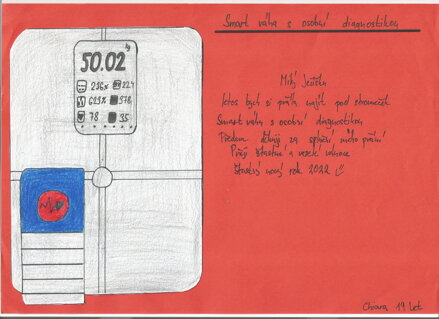 Smart váha s osobní diagnostikou
50.02 kg
29.6% 22.4
61.9% 978
78 35
Milý Ježíšku
letos bych si přála najít pod stromeček
Smart váhu s osobní diagnostikou
Předem děkuji za splnění mého přání
Přeji šťastné a veselé vánoce
Šťastný nový rok 2022
Chiara 19 let